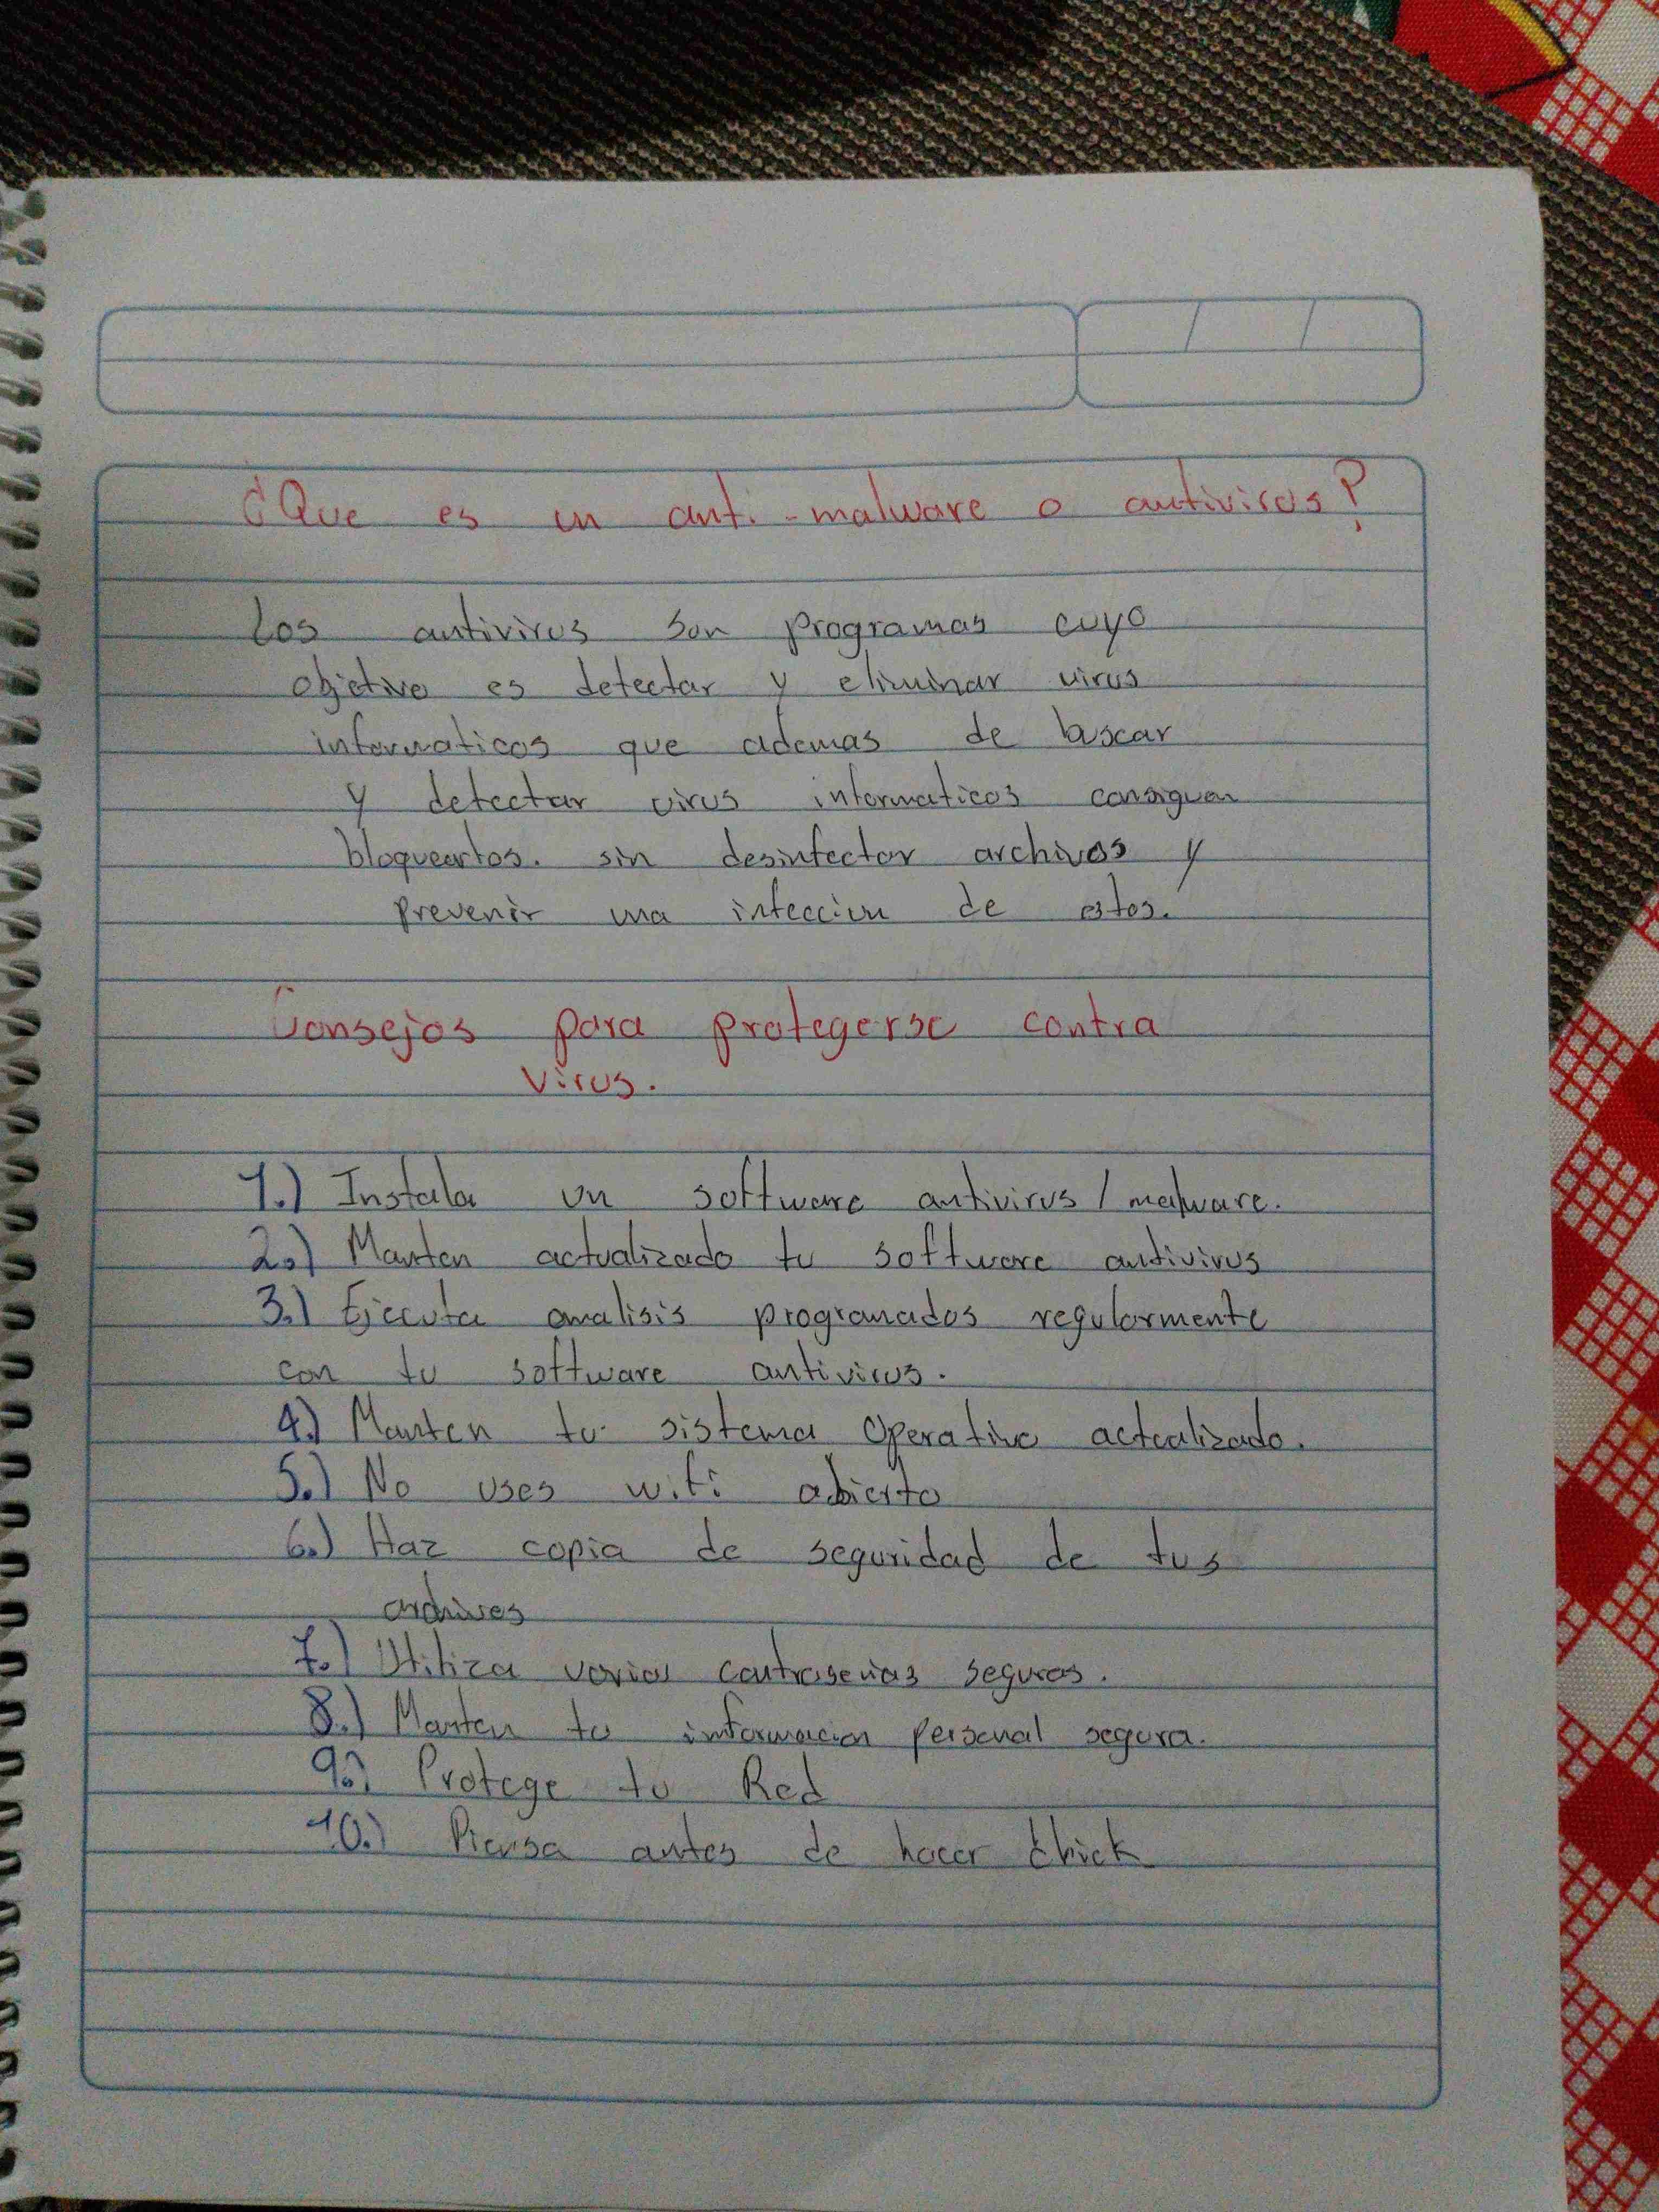 ¿Que es un anti-malware o antivirus?
Los antivirus son programas cuyo
objetivo es detectar y eliminar virus
informaticos que ademas de buscar
y detectar virus informaticos consiguen
bloquearlos. sin desinfectar archivos y
prevenir una infeccion de estos.
Consejos para protegerse contra
virus.
1.) Instala un software antivirus/malware.
2.) Manten actualizado tu software antivirus
3.) Ejecuta analisis programados regularmente
con tu software antivirus.
4.) Manten tu sistema operativo actualizado.
5.) No uses wifi abierto
6.) Haz copia de seguridad de tus
archivos
7.) Utiliza varias contraseñas seguras.
8.) Manten tu informacion personal segura.
9.) Protege tu Red
10.) Piensa antes de hacer